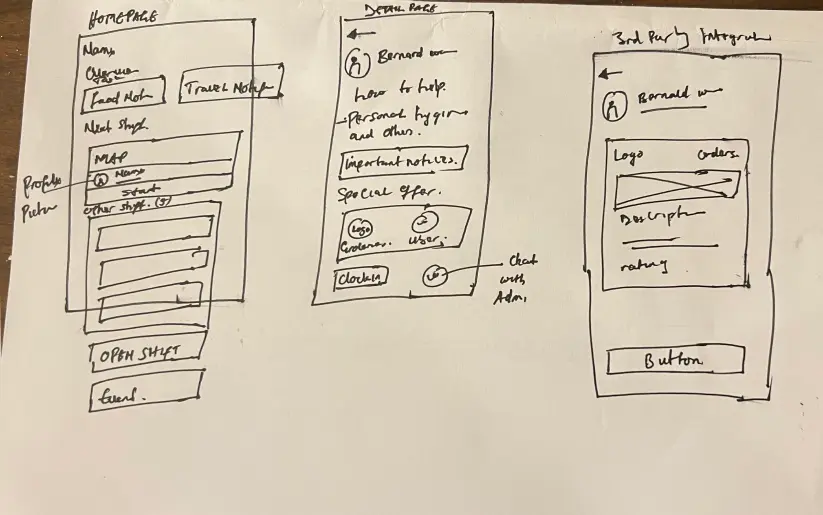 HOMEPAGE
Name
Food Note
Travel Note
Next Shift
MAP
Name
Start
Profile
Picture
Other shift. (3)
OPEN SHIFT
Event.
DETAIL PAGE
Bernard
how to help.
-Personal hygiene
and other.
important notices.
Special offer.
Logo
Clockin
Chat
with
Admi
3rd Party Integration
Bernard
Logo
orders.
Description
rating
Button